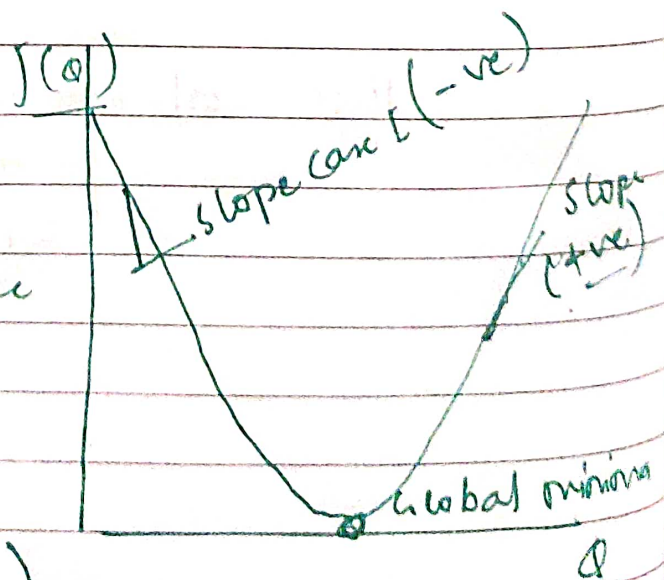 J(θ)
slope case I (-ve)
slope
(+ve)
Global minima
θ
)